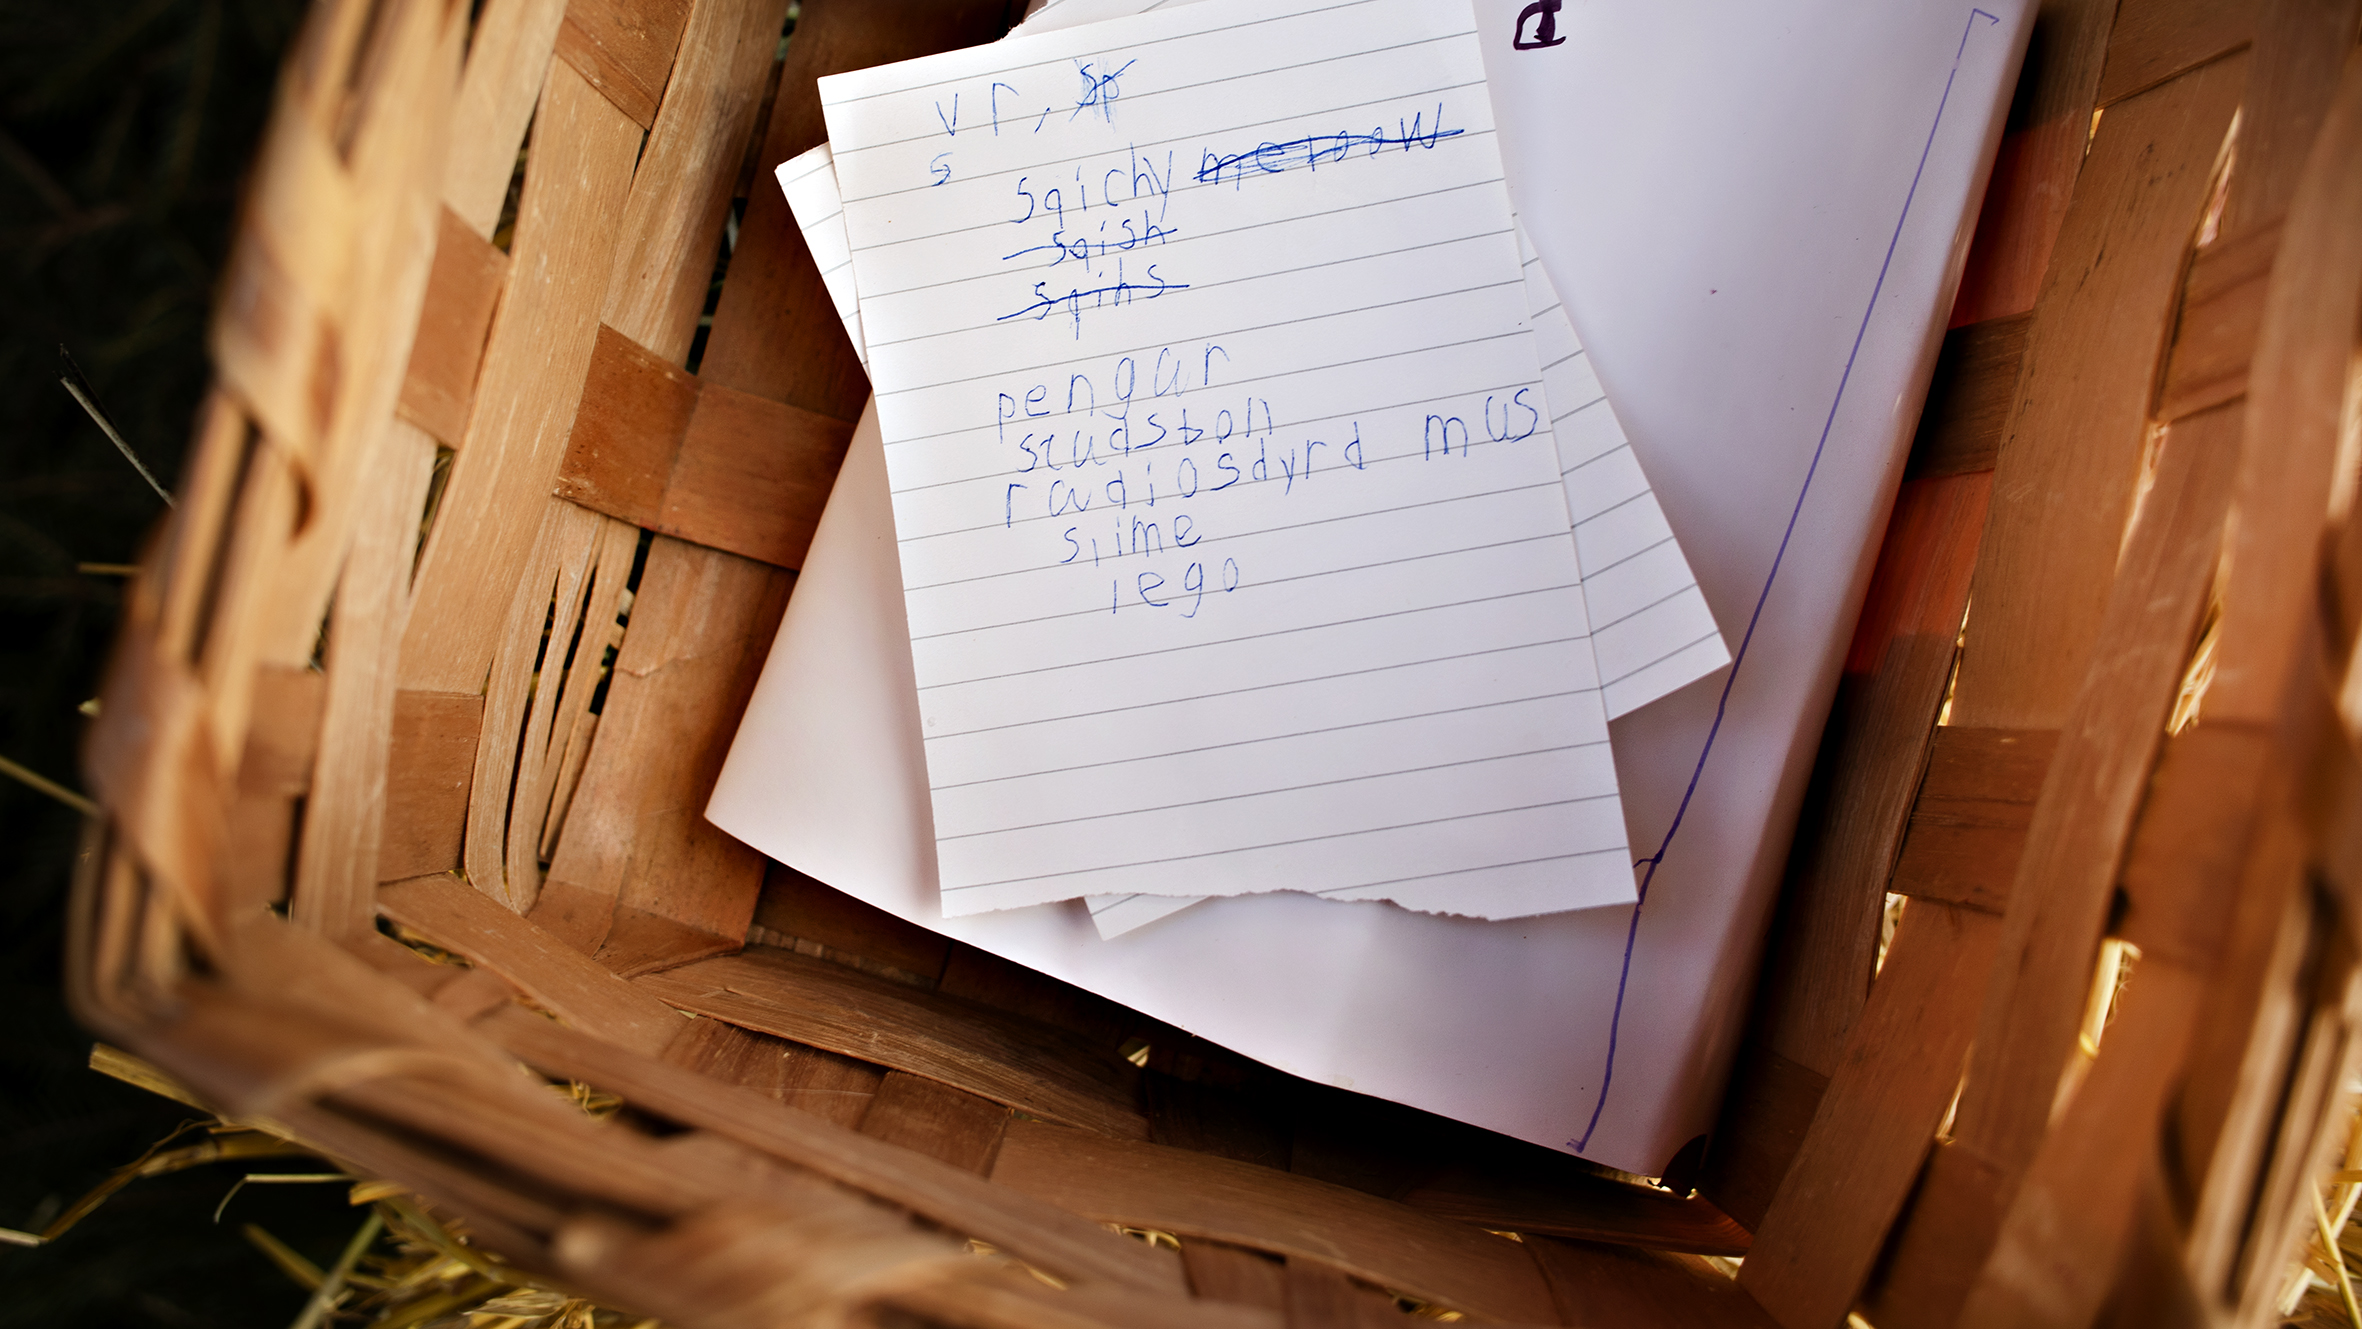 vr, sp
s
sqichy meroow
sqish
sqihs
pengar
studsbon
radiosdyrd mus
slime
lego